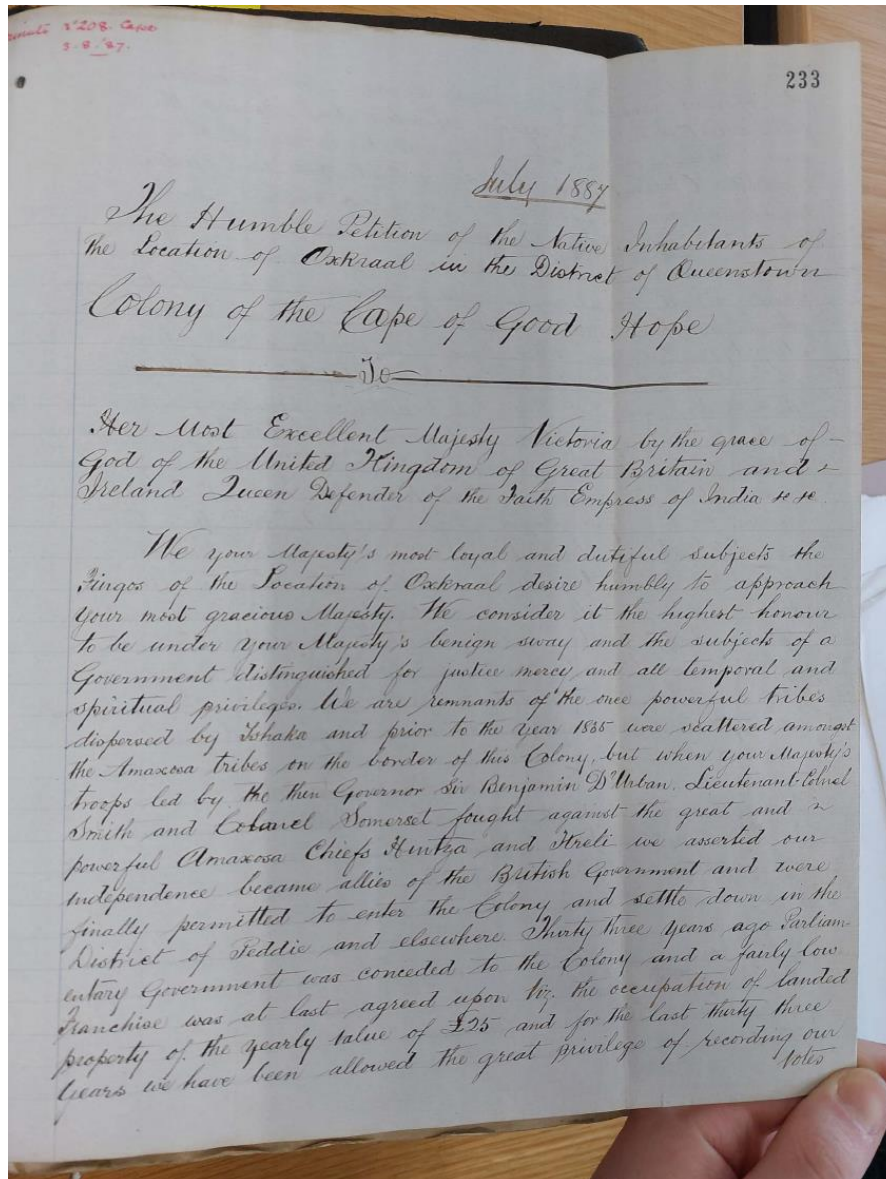 Minute No 208. Cape
5-8/87.
233
July 1887
The Humble Petition of the Native Inhabitants of
the Location of Oxkraal in the District of Queenstown
Colony of the Cape of Good Hope
To
Her Most Excellent Majesty Victoria by the grace of
God of the United Kingdom of Great Britain and
Ireland Queen Defender of the Faith Empress of India &c &c.
We your Majesty's most loyal and dutiful subjects the
Fingos of the Location of Oxkraal desire humbly to approach
your most gracious Majesty. We consider it the highest honour
to be under your Majesty's benign sway and the subjects of a
Government distinguished for justice mercy and all temporal and
spiritual privileges. We are remnants of the once powerful tribes
dispersed by Tshaka and prior to the year 1835 were scattered amongst
the Amaxosa tribes on the border of this Colony, but when your Majesty's
troops led by the then Governor Sir Benjamin D'Urban. Lieutenant-Colonel
Smith and Colonel Somerset fought against the great and
powerful Amaxosa Chiefs Hintza and Kreli we asserted our
independence became allies of the British Government and were
finally permitted to enter the Colony and settle down in the
District of Peddie and elsewhere. Thirty three years ago Parliam-
entary Government was conceded to the Colony and a fairly low
Franchise was at last agreed upon viz. the occupation of landed
property of the yearly value of £25 and for the last thirty three
years we have been allowed the great privilege of recording our
votes